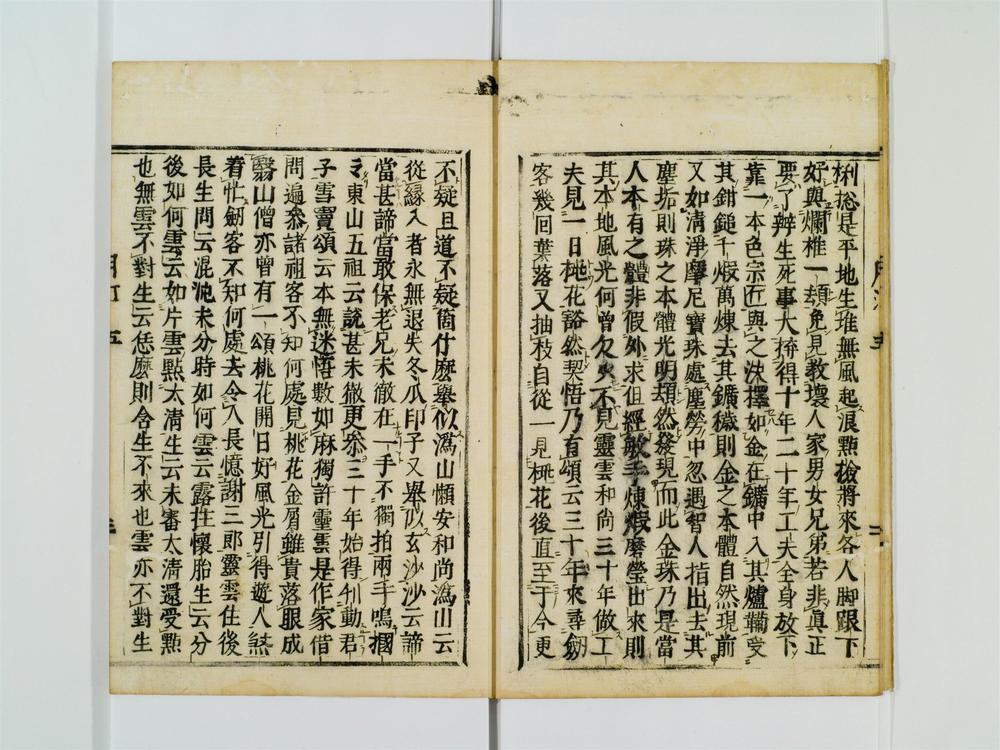 梸捴是平地生堆無風起浪點檢將來各人脚跟下
好與爛椎一頓免見教壞人家男女兄弟若非眞正
要了辧生死事大捹得十年二十年工夫全身放下
靠一本色宗匠與之決擇如金在鑛中入其爐鞴受
其鉗鎚千煆萬煉去其鑛穢則金之本體自然現前
又如清淨摩尼寶珠處塵勞中忽遇智人指出去其
塵垢則珠之本體光明頓然發現而此金珠乃是當
人本有之體非假外求但經敏手煉煆磨瑩出來則
其本地風光何曾欠少不見靈雲和尚三十年做工
夫見一日桃花豁然契悟乃有頌云三十年來尋劔
客幾回葉落又抽枝自從一見桃花後直至于今更
不疑且道不疑箇什麽舉似潙山懶安和尚潙山云
從緣入者永無退失冬瓜印子又舉似玄沙沙云諦
當甚諦當敢保老兄未徹在一手不獨拍兩手鳴摑
摑東山五祖云說甚未徹更叅三十年始得刋動君
子雪竇頌云本無迷悟數如麻獨許靈雲是作家借
問遍叅諸祖客不知何處見桃花金屑雖貴落眼成
翳山僧亦曾有一頌桃花開日好風光引得遊人煞
着忙劒客不知何處去令人長憶謝三郎靈雲住後
長生問云混沌未分時如何雲云露拄懷胎生云分
後如何雲云如片雲㸃太清生云未審太清還受㸃
也無雲不對生云恁麽則含生不來也雲亦不對生